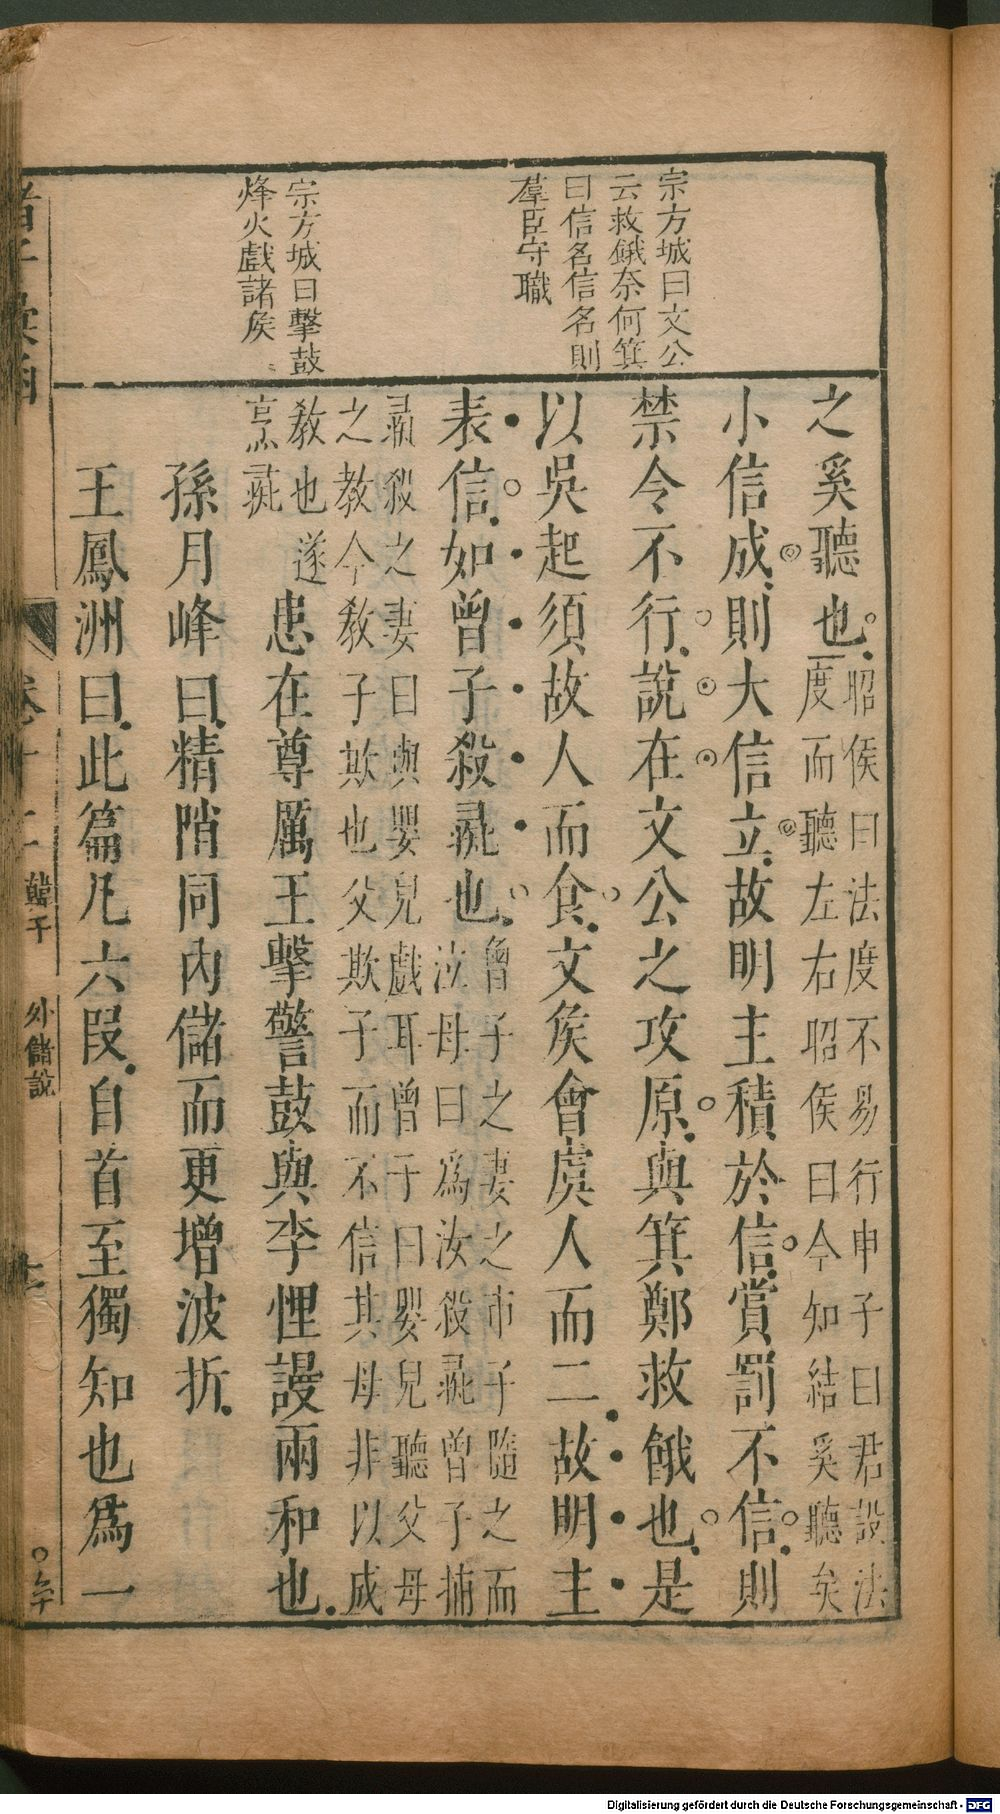 宗方城曰文公
云救餓奈何箕
曰信名信名則
羣臣守職
宗方城曰擊鼓
烽火戲諸矦
之奚聽也
昭侯曰法度不易行申子曰君設法
度而聽左右昭侯曰今知結奚聽矣
小信成則大信立故明主積於信賞罰不信則
禁令不行說在文公之攻原與箕鄭救餓也是
以吳起須故人而食文矦會虞人而二故明主
表信如曾子殺彘也
曾子之妻之市子隨之而
泣母曰爲汝殺彘曾子捕
彘殺之妻曰與嬰兒戲耳曾子曰嬰兒聽父母
之教今教子欺也父欺子而不信其母非以成
教也遂
烹彘
患在尊厲王擊警鼓與李悝謾兩和也
孫月峰曰精陗同內儲而更增波折
王鳳洲曰此篇凡六段自首至獨知也爲一
韓子
外儲說